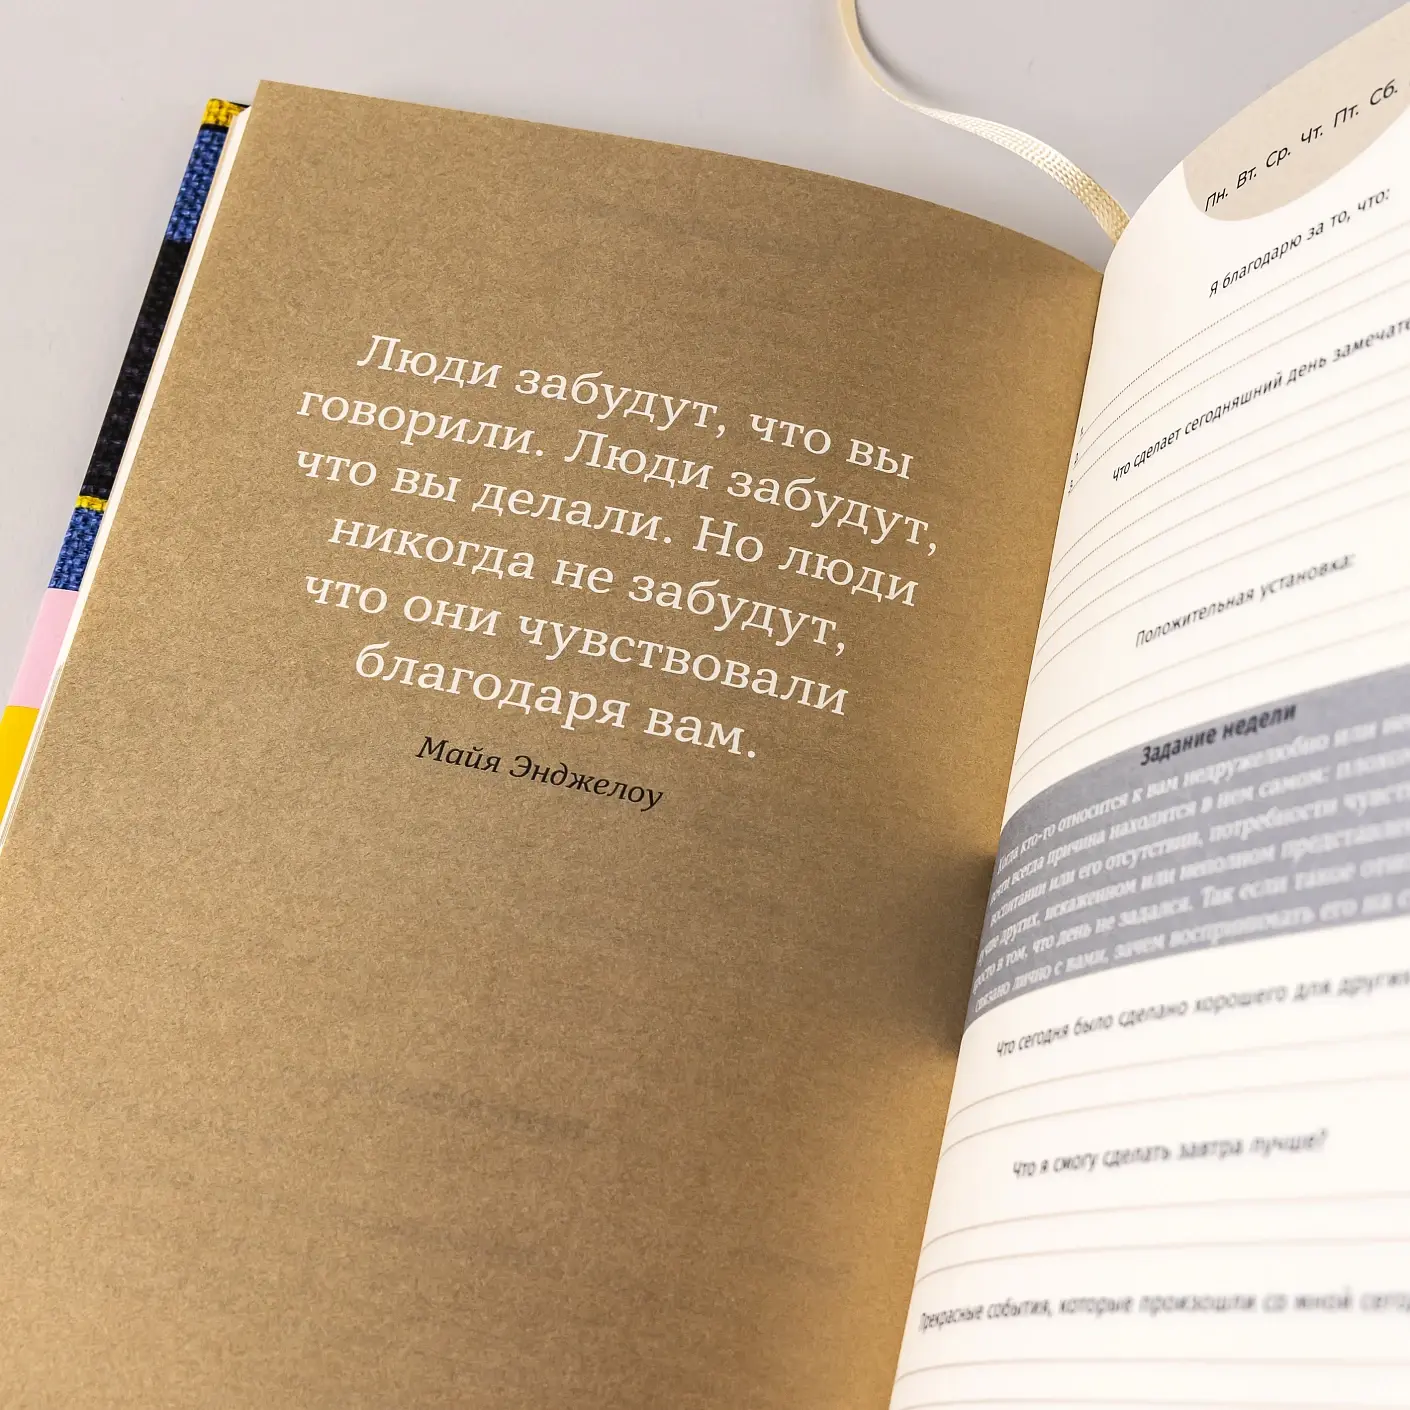 Люди забудут, что вы
говорили. Люди забудут,
что вы делали. Но люди
никогда не забудут,
что они чувствовали
благодаря вам.
Майя Энджелоу
Пн. Вт. Ср. Чт. Пт. Сб.
Я благодарю за то, что:
1.
2.
3.
Что сделает сегодняшний день
Положительная установка:
Задание недели
Когда кто-то относится к вам недружелюбно или
почти всегда причина находится в нем самом:
воспитании или его отсутствии, потребности
других, искаженном или неполном
просто в том, что день не задался. Так если такое
связано лично с вами, зачем воспринимать его на
Что сегодня было сделано хорошего для
Что я смогу сделать завтра лучше?
Прекрасные события, которые произошли со мной